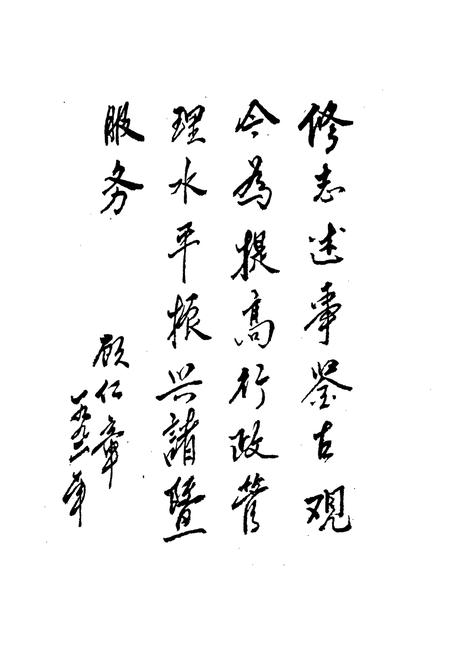 修志述事鉴古观
今为提高行政管
理水平振兴諸暨
服务
顾仁章
一九九一年